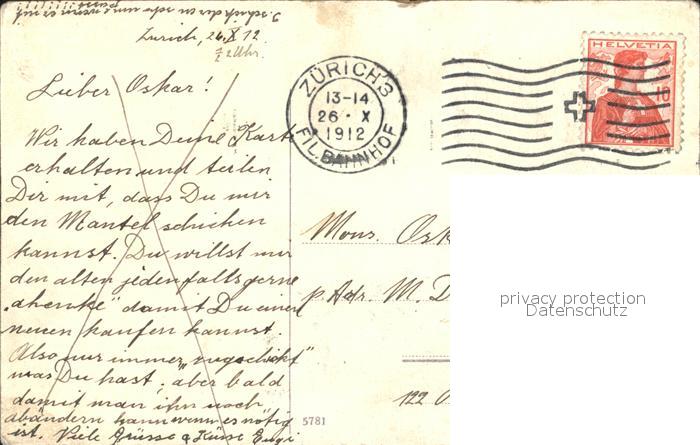 Zürich, 26.X.12
½ 2 Uhr.
Lieber Oskar!
Wir haben Deine Karte
erhalten und teilen
Dir mit, dass Du mir
den Mantel schicken
kannst. Du willst mir
den alten jedenfalls gerne
„ahenke" damit Du einen
neuen kaufen kannst.
Also nur immer "zugeschickt"
was Du hast, aber bald
damit man ihn noch
abändern kann wenn es nötig
ist. Viele Grüsse & Küsse Eugi
ZÜRICH 3
13-14
26 · X
1912
FIL. BAHNHOF
HELVETIA
10
Mons. Osk
p. Adr. M. D
122
privacy protection
Datenschutz
5781